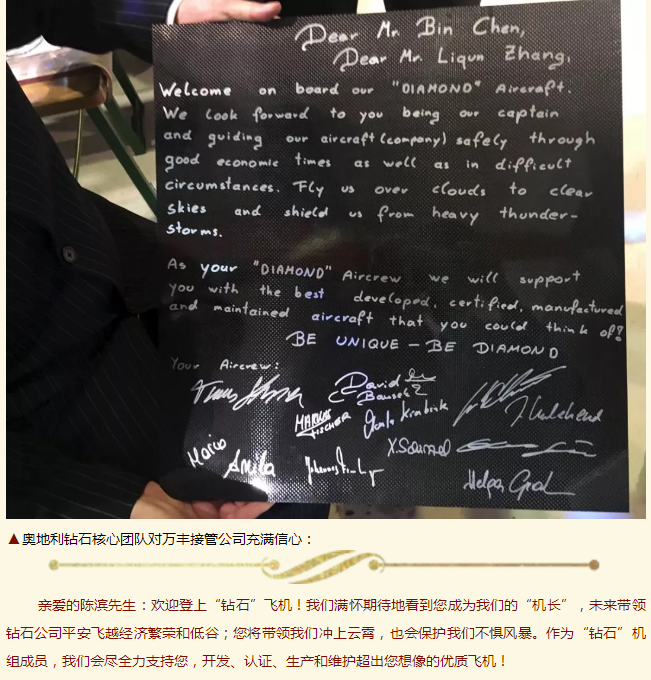 Dear Mr. Bin Chen,
Dear Mr. Liqun Zhang,
Welcome on board our "DIAMOND" Aircraft.
We look forward to you being our captain
and guiding our aircraft (company) safely through
good economic times as well as in difficult
circumstances. Fly us over clouds to clear
skies and shield us from heavy thunder-
storms.
As your "DIAMOND" Aircrew we will support
you with the best developed, certified, manufactured
and maintained aircraft that you could think of!
BE UNIQUE – BE DIAMOND
Your Aircrew:
David
MARKUS
FISCHER
Mario
Smila
▲奥地利钻石核心团队对万丰接管公司充满信心：
亲爱的陈滨先生：欢迎登上“钻石”飞机！我们满怀期待地看到您成为我们的“机长”，未来带领
钻石公司平安飞越经济繁荣和低谷；您将带领我们冲上云霄，也会保护我们不惧风暴。作为“钻石”机
组成员，我们会尽全力支持您，开发、认证、生产和维护超出您想像的优质飞机！